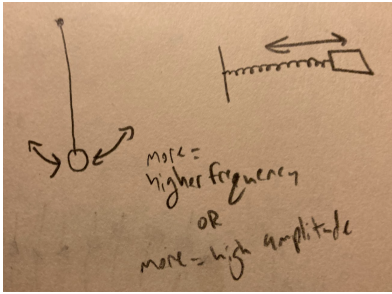 more =
higher frequency
OR
more = high amplitude